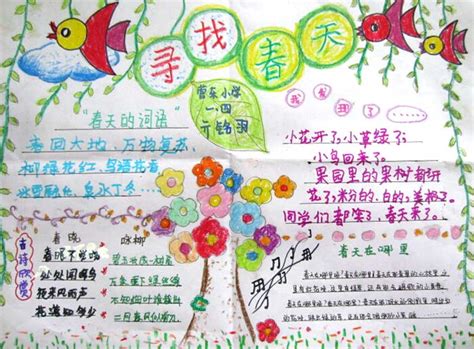 寻找春天
营东小学
一.四
亓铭羽
"春天的词语"
春回大地、万物复苏、
柳绿花红、鸟语花香
冰雪融化、泉水丁冬……
我发现了……
小花开了，小草绿了，
小鸟回来了。
果园里的果树都开
花了，粉的、白的、美极了。
同学们都笑了，春天来了。
古诗欣赏
春晓
春眠不觉晓
处处闻啼鸟
夜来风雨声
花落知多少
咏柳
碧玉妆成一树高
万条垂下绿丝绦
不知细叶谁裁出
二月春风似剪刀
春天在哪里